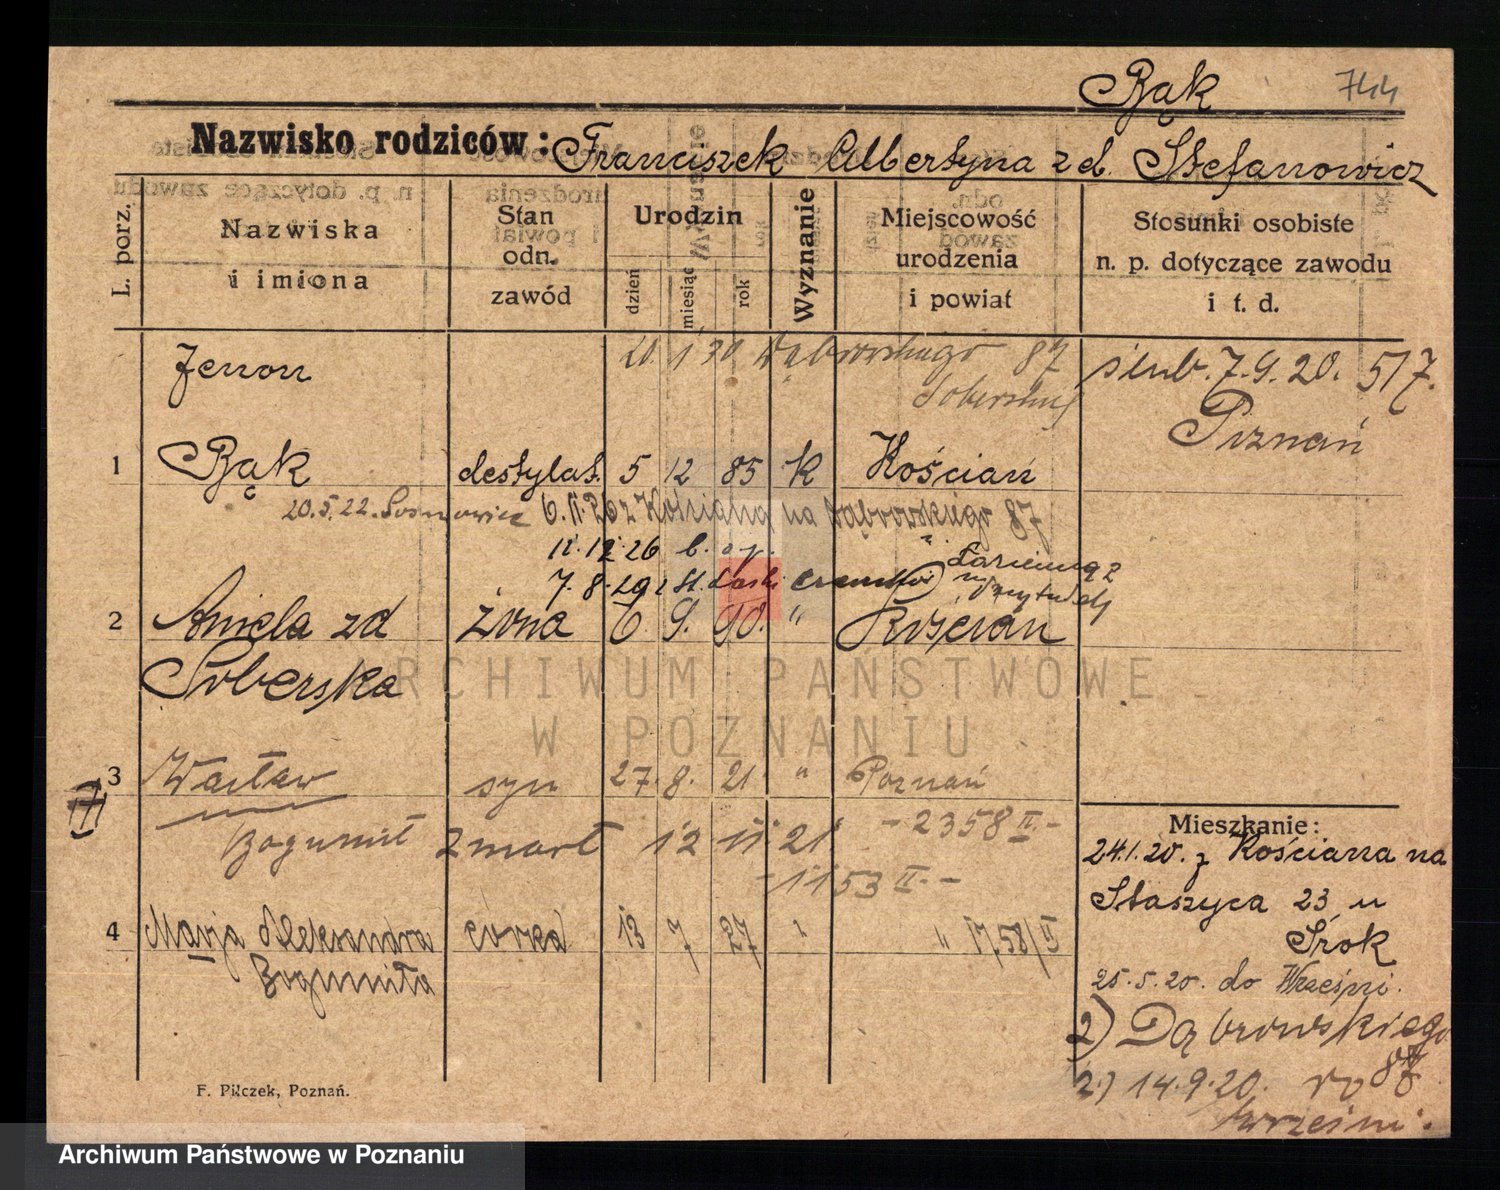 Bąk 744
Nazwisko rodziców: Franciszek Albertyna z d. Stefanowicz
L. porz.
Nazwiska i imiona
Stan odn. zawód
Urodzin
dzień miesiąc rok
Wyznanie
Miejscowość urodzenia i powiat
Stosunki osobiste n. p. dotyczące zawodu i t. d.
Zenon 20. 1 30 Dąbrowskiego 87
ślub. 7.9.20. 517.
Poznań
1 Bąk destylat. 5 12 85 k Kościan
20.5.22. Sosnowice 6.11.26 z na Dąbrowskiego 87
11.12.26
7.8.29
2 Aniela zd żona 6. 9. 90. " Kościan
Soberska
3 Wacław syn 27. 8. 21. " Poznań
- 2358 II -
Bogumił zmarł 12 11 21
- 1153 II - -
4 Marja Aleksandra córka 13 7 27 " 1758/II
Bogumiła
Mieszkanie:
24.1.20. z Kościana na
Staszyca 23 u
Srok
25.5.20. do Wrześni.
2) Dąbrowskiego
87
2.) 14.9.20.
Wrześni.
F. Pilczek, Poznań.
ARCHIWUM PAŃSTWOWE
W POZNANIU
Archiwum Państwowe w Poznaniu